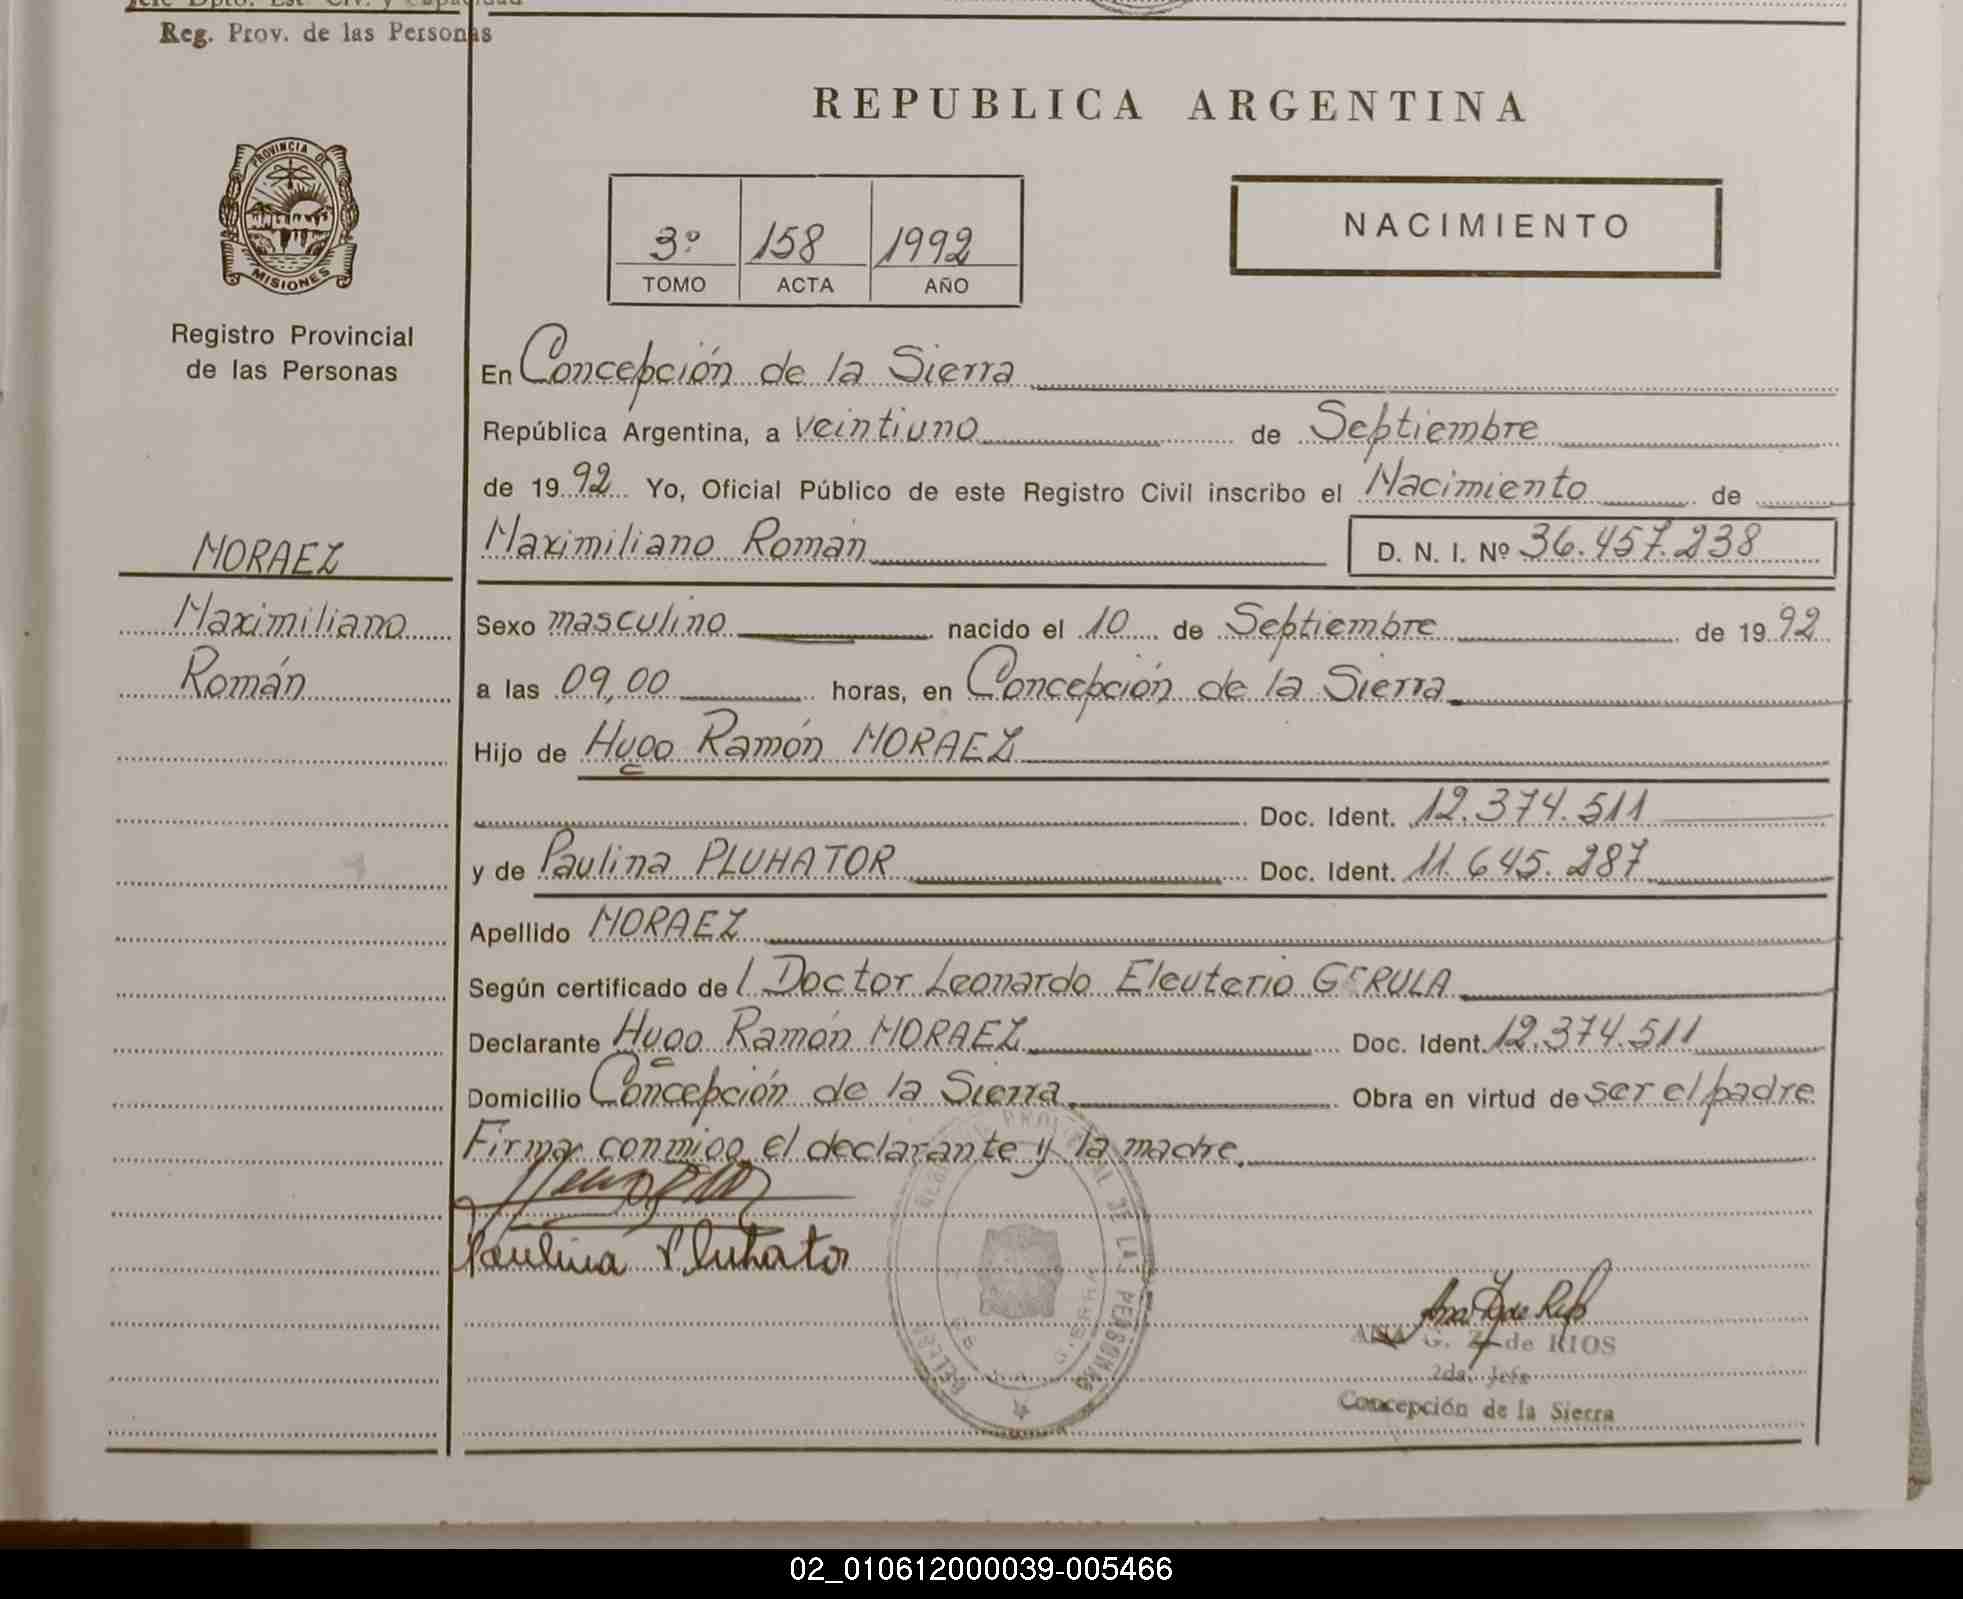 Jefe Dpto. Est. Civ. y Capacidad
Reg. Prov. de las Personas
REPUBLICA ARGENTINA
PROVINCIA DE
MISIONES
Registro Provincial
de las Personas
3º 158 1992
TOMO ACTA AÑO
NACIMIENTO
En Concepción de la Sierra
República Argentina, a veintiuno de Septiembre
de 1992 Yo, Oficial Público de este Registro Civil inscribo el Nacimiento de
Maximiliano Román D. N. I. Nº 36.457.238
MORAEZ
Maximiliano
Román
Sexo masculino nacido el 10 de Septiembre de 1992
a las 09,00 horas, en Concepción de la Sierra
Hijo de Hugo Ramón MORAEZ
Doc. Ident. 12.374.511
y de Paulina PLUHATOR Doc. Ident. 11.645.287
Apellido MORAEZ
Según certificado del Doctor Leonardo Eleuterio GERULA
Declarante Hugo Ramón MORAEZ Doc. Ident. 12.374.511
Domicilio Concepción de la Sierra Obra en virtud de ser el padre
Firma conmigo el declarante y la madre.
Paulina Pluhator
PROVINCIAL DE LA PERSONAS
ANA G. Z. de RIOS
2da. Jefa
Concepción de la Sierra
02_010612000039-005466